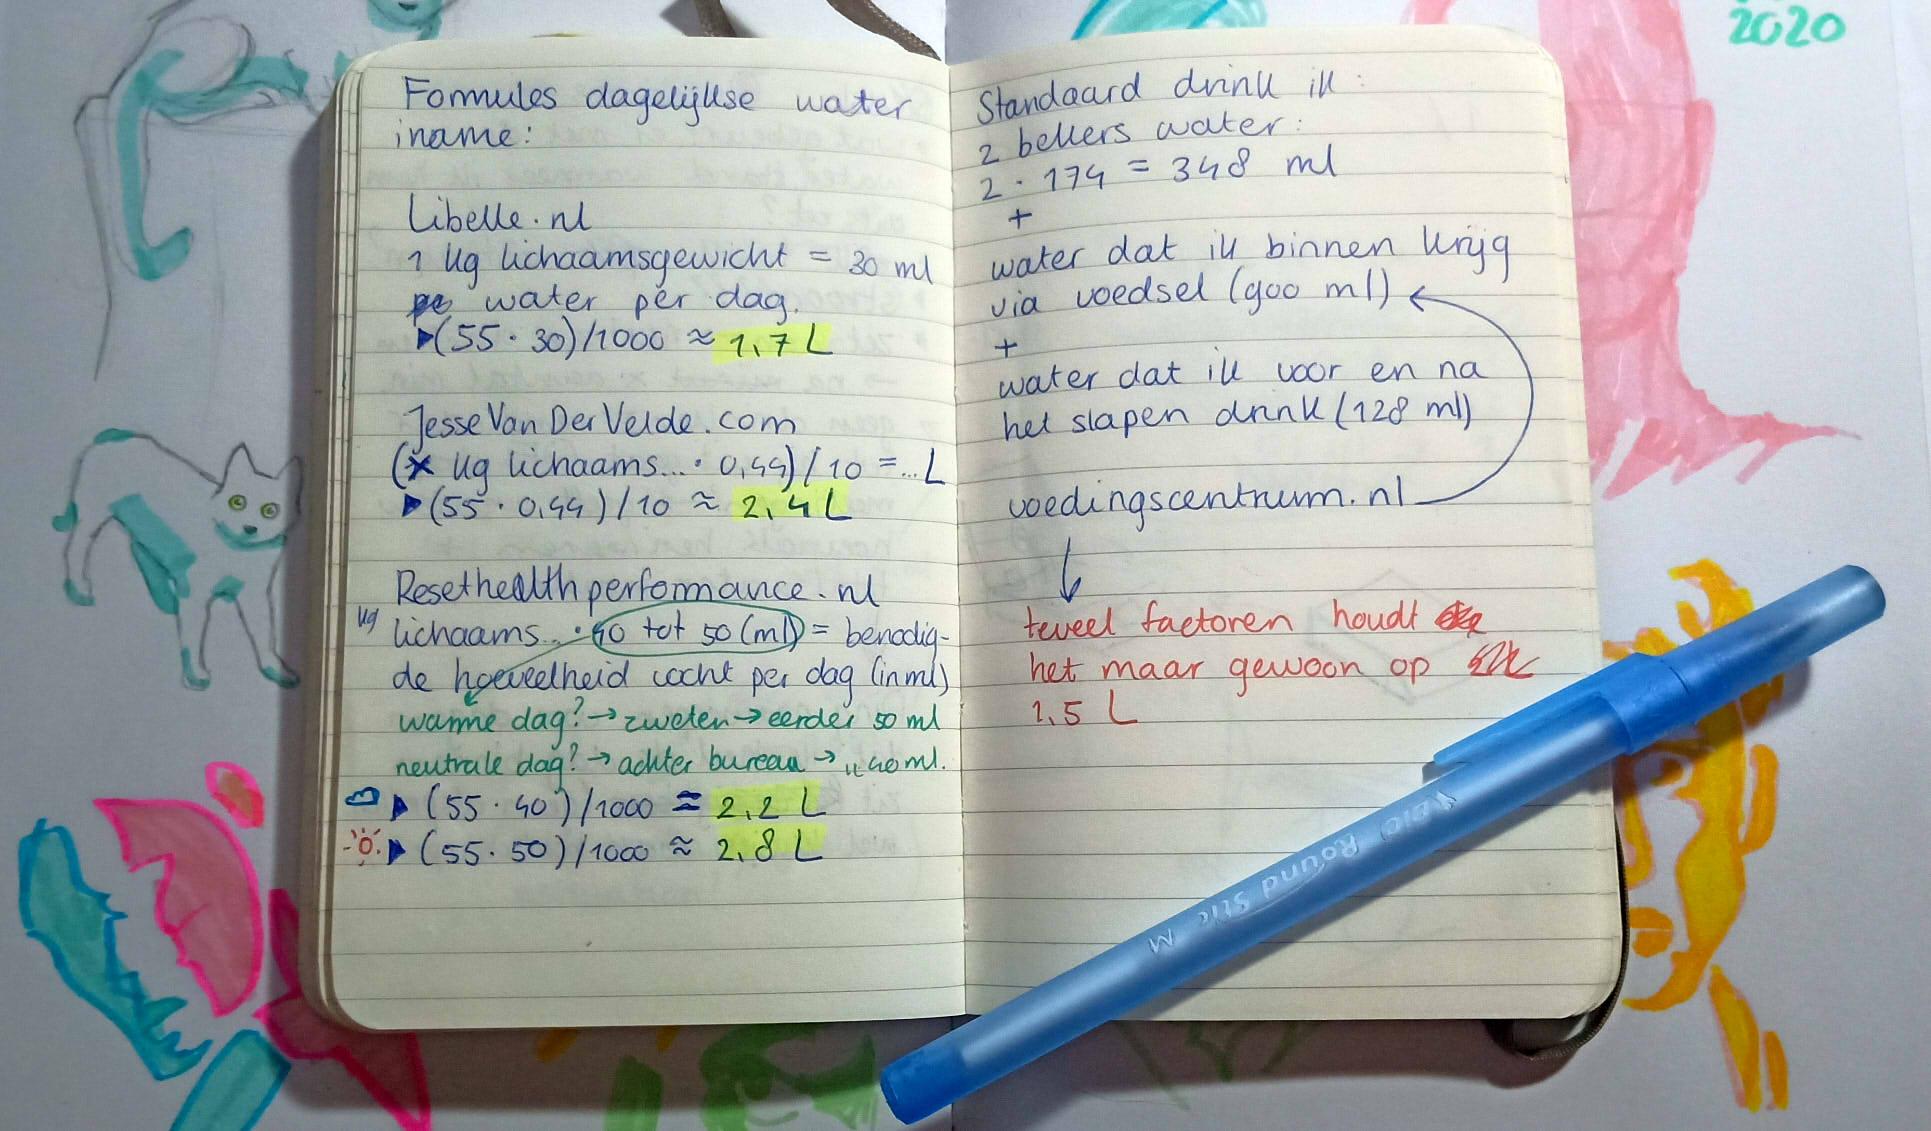 Formules dagelijkse water
iname:
Libelle.nl
1 kg lichaamsgewicht = 30 ml
water per dag.
▶(55 · 30)/1000 ≈ 1,7 L
JesseVanDerVelde.com
(x kg lichaams... · 0,44)/10 =...L
▶(55 · 0,44)/10 ≈ 2,4 L
Resethealthperformance.nl
kg lichaams... · 40 tot 50 (ml) = benodig-
de hoeveelheid vocht per dag (in ml)
warme dag? → zweten → eerder 50 ml
neutrale dag? → achter bureau → " 40 ml.
▶ (55 · 40)/1000 ≈ 2,2 L
▶ (55 · 50)/1000 ≈ 2,8 L
Standaard drink ik:
2 bekers water:
2 · 174 = 348 ml
+
water dat ik binnen krijg
via voedsel (900 ml)
+
water dat ik voor en na
het slapen drink (128 ml)
voedingscentrum.nl
teveel factoren houdt
het maar gewoon op
1,5 L
2020
BIC Round Stic M